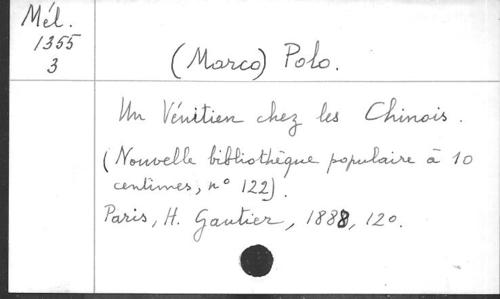 Mél.
1355
3
(Marco) Polo.
Un Vénitien chez les Chinois.
(Nouvelle bibliothèque populaire à 10
centimes, n° 122).
Paris, H. Gautier, 1888, 12o.